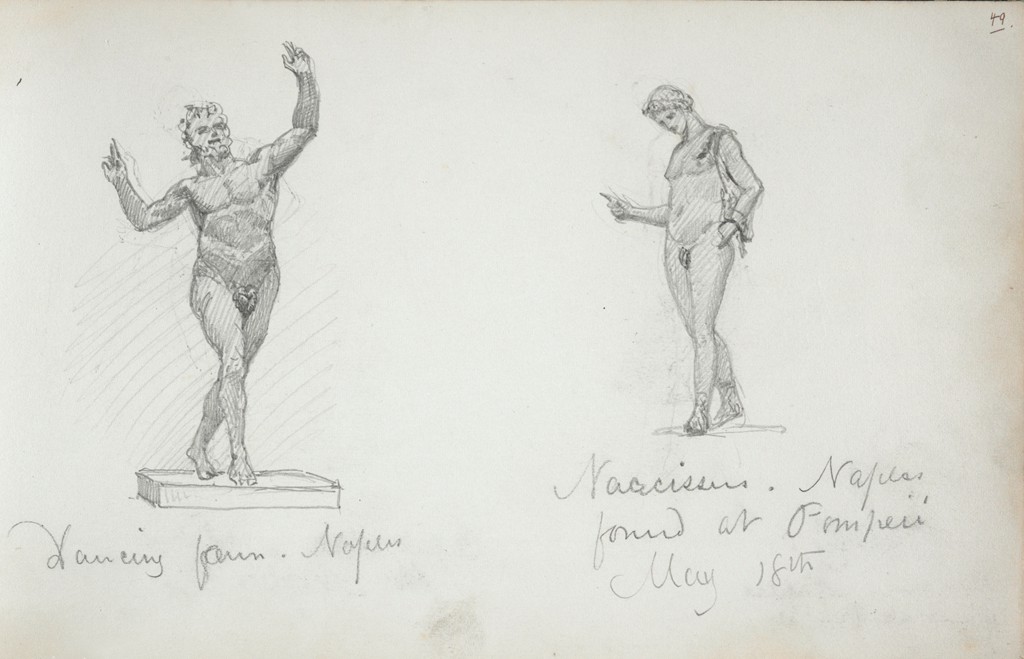 49.
Dancing faun. Naples
Narcissus. Naples
found at Pompeii
May 18th